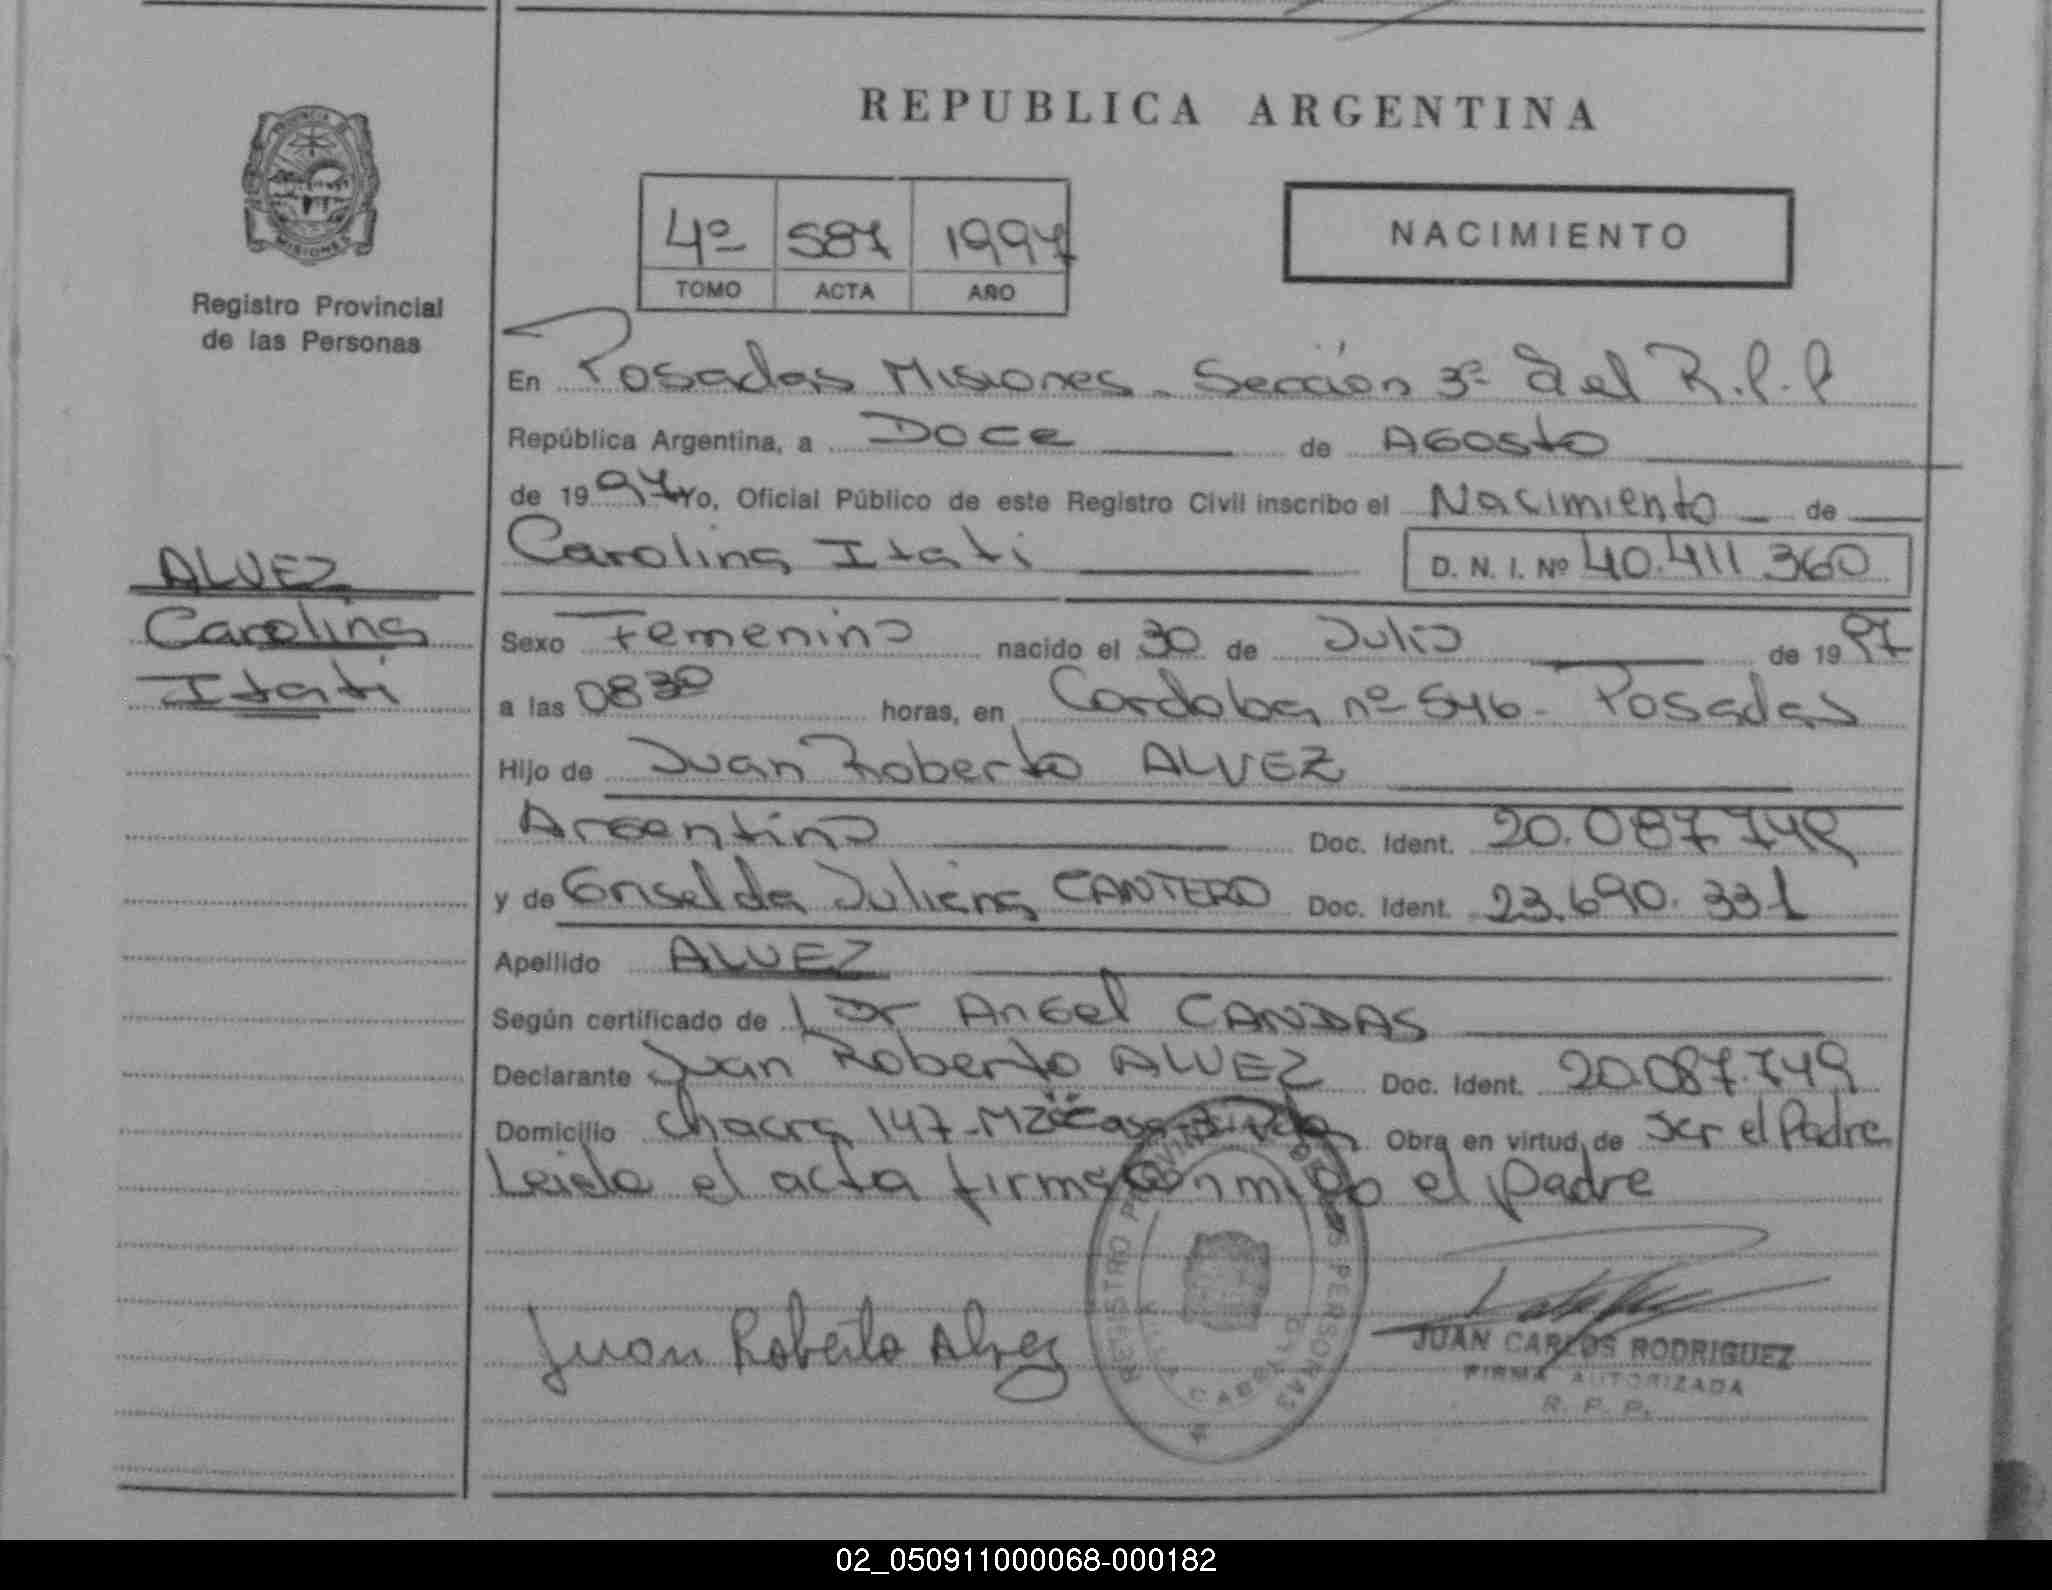 REPUBLICA ARGENTINA
PROVINCIA DE
MISIONES
Registro Provincial
de las Personas
4º 587 1997
TOMO ACTA AÑO
NACIMIENTO
En Posadas Misiones - Sección 3ª del R.P.P
República Argentina, a Doce de Agosto
de 1997 Yo, Oficial Público de este Registro Civil inscribo el Nacimiento de
Carolina Itati D. N. I. Nº 40.411 360
ALVEZ
Carolina
Itati
Sexo Femenino nacido el 30 de Julio de 1997
a las 0830 horas, en Cordoba nº 546 - Posadas
Hijo de Juan Roberto ALVEZ
Argentino Doc. Ident. 20.087 749
y de Griselda Juliana CANTERO Doc. Ident. 23.690.331
Apellido ALVEZ
Según certificado de Dr Angel CANDAS
Declarante Juan Roberto ALVEZ Doc. Ident. 20.087.749
Domicilio Chacra 147-MZ Casa Obra en virtud de Ser el Padre
Leida el acta firma conmigo el padre
Juan Roberto Alvez
REGISTRO PROVINCIAL DE LAS PERSONAS
JUAN CARLOS RODRIGUEZ
FIRMA AUTORIZADA
R. P. P.
02_050911000068-000182